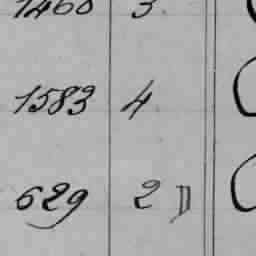 1460 3
1583 4
629 2 D